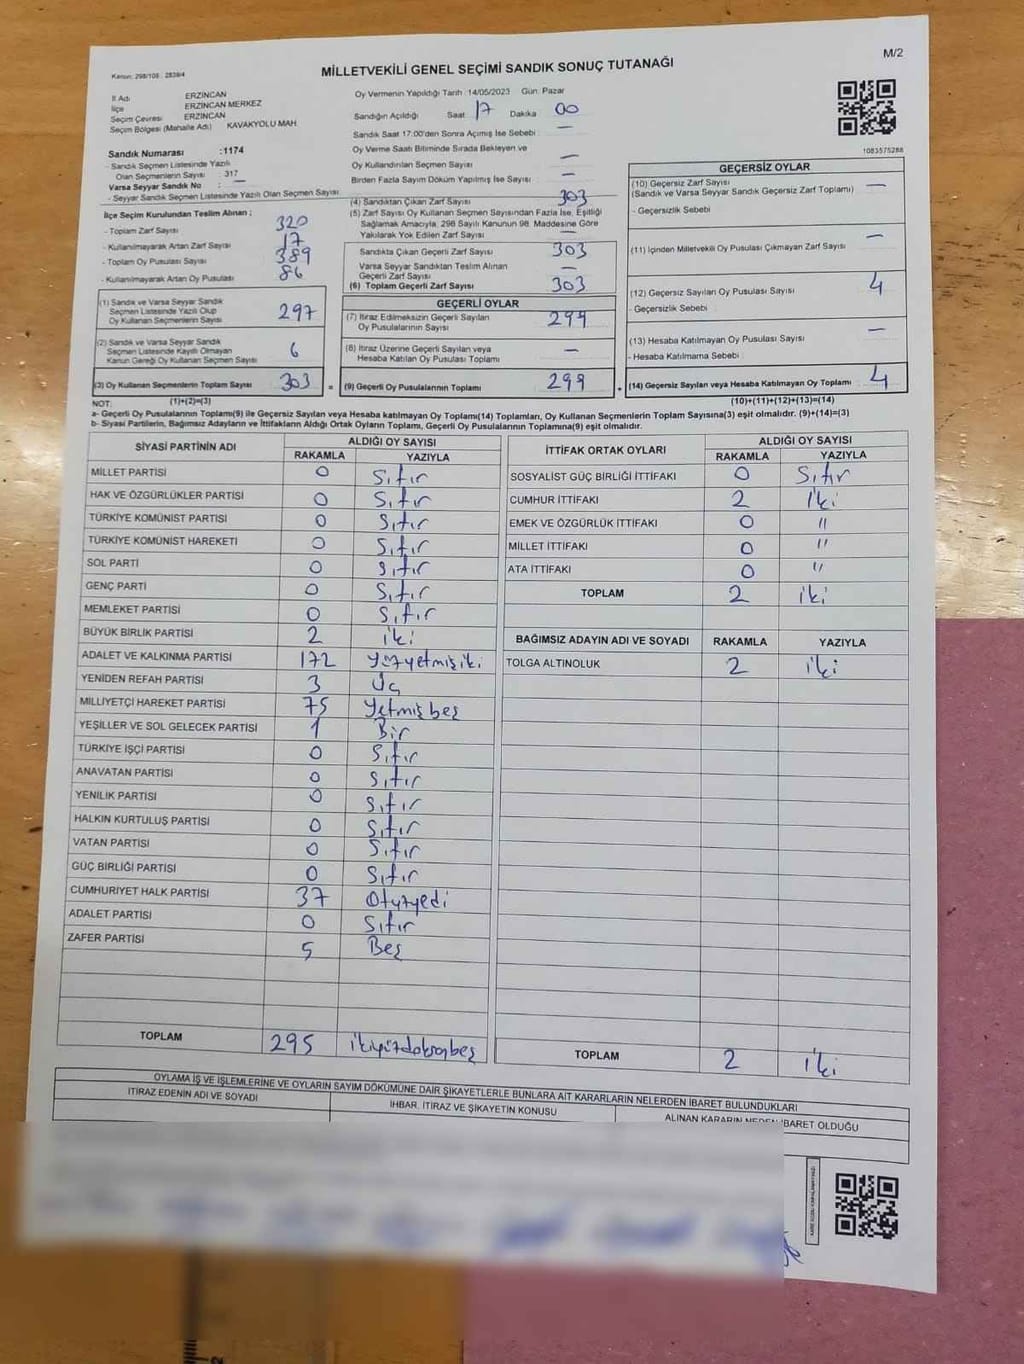 M/2
Kanun: 298/105 : 2839/4
MİLLETVEKİLİ GENEL SEÇİMİ SANDIK SONUÇ TUTANAĞI
İl Adı ERZİNCAN
İlçe ERZİNCAN MERKEZ
Seçim Çevresi ERZİNCAN
Seçim Bölgesi (Mahalle Adı) KAVAKYOLU MAH.
Sandık Numarası :1174
- Sandık Seçmen Listesinde Yazılı
Olan Seçmenlerin Sayısı : 317
Varsa Seyyar Sandık No : —
- Seyyar Sandık Seçmen Listesinde Yazılı Olan Seçmen Sayısı
İlçe Seçim Kurulundan Teslim Alınan ;
- Toplam Zarf Sayısı 320
- Kullanılmayarak Artan Zarf Sayısı 17
- Toplam Oy Pusulası Sayısı 389
- Kullanılmayarak Artan Oy Pusulası 86
(1) Sandık ve Varsa Seyyar Sandık
Seçmen Listesinde Yazılı Olup
Oy Kullanan Seçmenlerin Sayısı 297
(2) Sandık ve Varsa Seyyar Sandık
Seçmen Listesinde Kayıtlı Olmayan
Kanun Gereği Oy Kullanan Seçmen Sayısı 6
(3) Oy Kullanan Seçmenlerin Toplam Sayısı 303 =
(1)+(2)=(3)
Oy Vermenin Yapıldığı Tarih : 14/05/2023 Gün: Pazar
Sandığın Açıldığı Saat 17 Dakika 00
Sandık Saat 17:00'den Sonra Açımış İse Sebebi : —
Oy Verme Saati Bitiminde Sırada Bekleyen ve
Oy Kullandırılan Seçmen Sayısı —
Birden Fazla Sayım Döküm Yapılmış İse Sayısı : —
(4) Sandıktan Çıkan Zarf Sayısı 303
(5) Zarf Sayısı Oy Kullanan Seçmen Sayısından Fazla İse, Eşitliği
Sağlamak Amacıyla; 298 Sayılı Kanunun 98. Maddesine Göre
Yakılarak Yok Edilen Zarf Sayısı —
Sandıkta Çıkan Geçerli Zarf Sayısı 303
Varsa Seyyar Sandıktan Teslim Alınan
Geçerli Zarf Sayısı —
(6) Toplam Geçerli Zarf Sayısı 303
GEÇERLİ OYLAR
(7) İtiraz Edilmeksizin Geçerli Sayılan
Oy Pusulalarının Sayısı 299
(8) İtiraz Üzerine Geçerli Sayılan veya
Hesaba Katılan Oy Pusulası Toplamı —
(9) Geçerli Oy Pusulalarının Toplamı 299 +
1083575288
GEÇERSİZ OYLAR
(10) Geçersiz Zarf Sayısı —
(Sandık ve Varsa Seyyar Sandık Geçersiz Zarf Toplamı)
- Geçersizlik Sebebi
(11) İçinden Milletvekili Oy Pusulası Çıkmayan Zarf Sayısı —
(12) Geçersiz Sayılan Oy Pusulası Sayısı 4
- Geçersizlik Sebebi
(13) Hesaba Katılmayan Oy Pusulası Sayısı —
- Hesaba Katılmama Sebebi
(14) Geçersiz Sayılan veya Hesaba Katılmayan Oy Toplamı 4
(10)+(11)+(12)+(13)=(14)
NOT:
a- Geçerli Oy Pusulalarının Toplamı(9) ile Geçersiz Sayılan veya Hesaba katılmayan Oy Toplamı(14) Toplamları, Oy Kullanan Seçmenlerin Toplam Sayısına(3) eşit olmalıdır. (9)+(14)=(3)
b- Siyasi Partilerin, Bağımsız Adayların ve İttifakların Aldığı Ortak Oyların Toplamı, Geçerli Oy Pusulalarının Toplamına(9) eşit olmalıdır.
SİYASİ PARTİNİN ADI ALDIĞI OY SAYISI
RAKAMLA YAZIYLA
MİLLET PARTİSİ 0 Sıfır
HAK VE ÖZGÜRLÜKLER PARTİSİ 0 Sıfır
TÜRKİYE KOMÜNİST PARTİSİ 0 Sıfır
TÜRKİYE KOMÜNİST HAREKETİ 0 Sıfır
SOL PARTİ 0 Sıfır
GENÇ PARTİ 0 Sıfır
MEMLEKET PARTİSİ 0 Sıfır
BÜYÜK BİRLİK PARTİSİ 2 iki
ADALET VE KALKINMA PARTİSİ 172 yüzyetmişiki
YENİDEN REFAH PARTİSİ 3 Üç
MİLLİYETÇİ HAREKET PARTİSİ 75 Yetmişbeş
YEŞİLLER VE SOL GELECEK PARTİSİ 1 Bir
TÜRKİYE İŞÇİ PARTİSİ 0 Sıfır
ANAVATAN PARTİSİ 0 Sıfır
YENİLİK PARTİSİ 0 Sıfır
HALKIN KURTULUŞ PARTİSİ 0 Sıfır
VATAN PARTİSİ 0 Sıfır
GÜÇ BİRLİĞİ PARTİSİ 0 Sıfır
CUMHURİYET HALK PARTİSİ 37 Otuzyedi
ADALET PARTİSİ 0 Sıfır
ZAFER PARTİSİ 5 Beş
TOPLAM 295 ikiyüzdoksanbeş
İTTİFAK ORTAK OYLARI ALDIĞI OY SAYISI
RAKAMLA YAZIYLA
SOSYALİST GÜÇ BİRLİĞİ İTTİFAKI 0 Sıfır
CUMHUR İTTİFAKI 2 iki
EMEK VE ÖZGÜRLÜK İTTİFAKI 0 "
MİLLET İTTİFAKI 0 "
ATA İTTİFAKI 0 "
TOPLAM 2 iki
BAĞIMSIZ ADAYIN ADI VE SOYADI RAKAMLA YAZIYLA
TOLGA ALTINOLUK 2 iki
TOPLAM 2 iki
OYLAMA İŞ VE İŞLEMLERİNE VE OYLARIN SAYIM DÖKÜMÜNE DAİR ŞİKAYETLERLE BUNLARA AİT KARARLARIN NELERDEN İBARET BULUNDUKLARI
İTİRAZ EDENİN ADI VE SOYADI
İHBAR, İTİRAZ VE ŞİKAYETİN KONUSU
ALINAN KARARIN NEDEN İBARET OLDUĞU